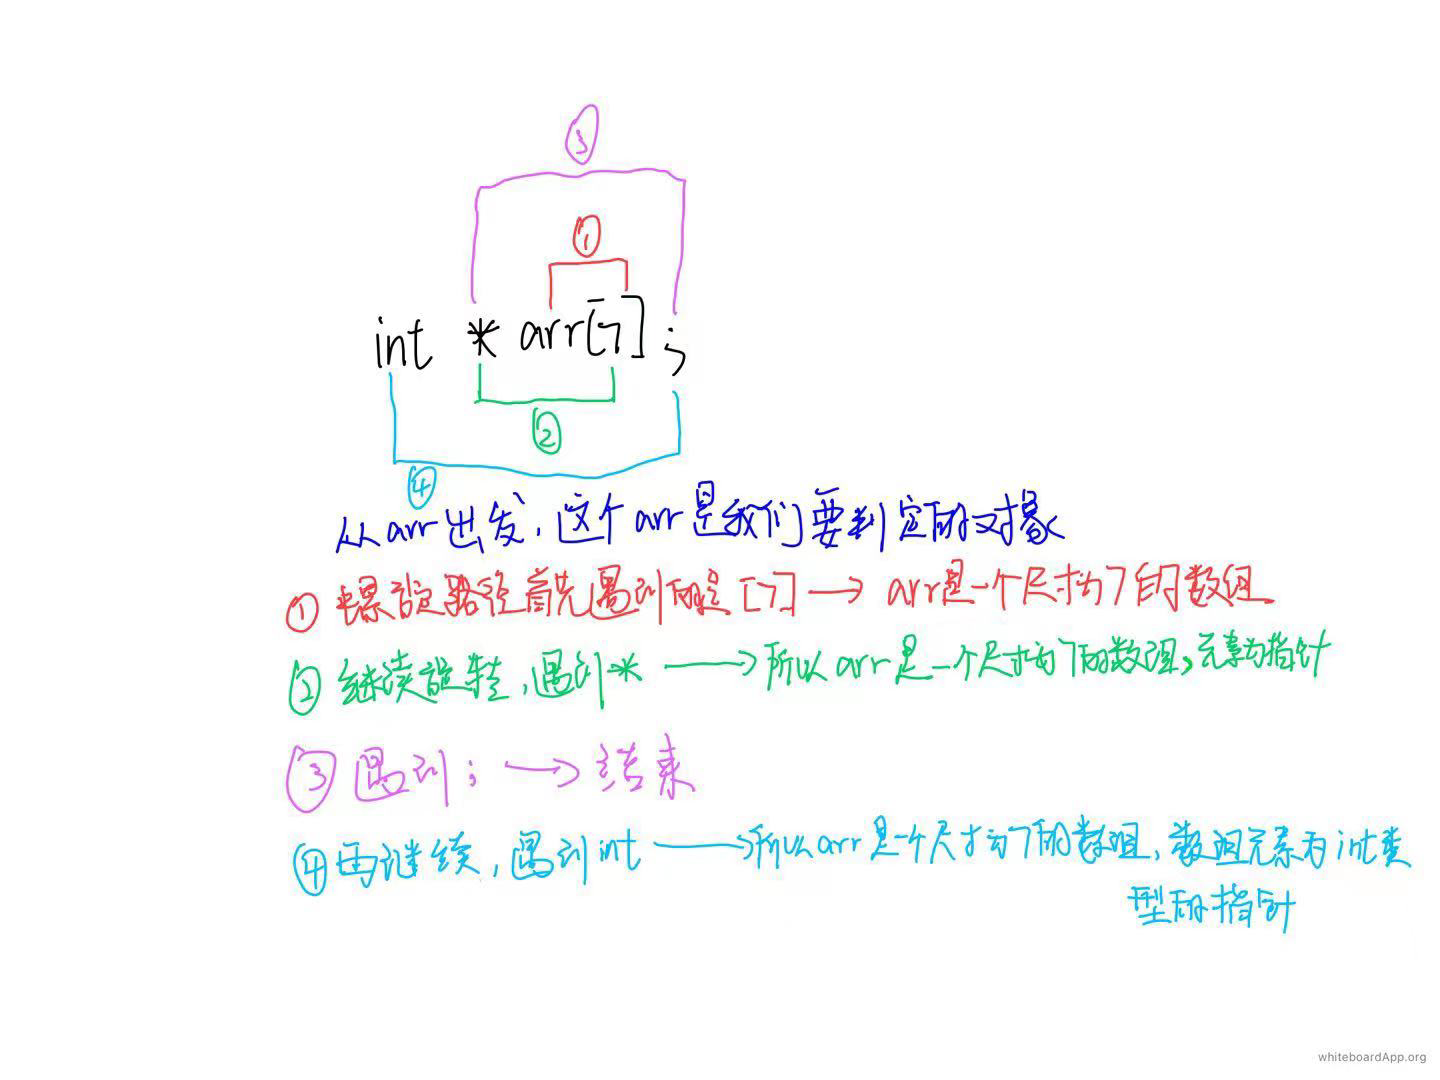 ③
①
int * arr[7] ;
②
④
从arr出发，这个arr是我们要判定的对象
① 螺旋路径首先遇到的是[7] → arr是一个尺寸为7的数组
② 继续旋转，遇到* → 所以arr是一个尺寸为7的数组，元素为指针
③ 遇到； → 结束
④ 再继续，遇到int → 所以arr是一个尺寸为7的数组，数组元素为int类
型的指针
whiteboardApp.org